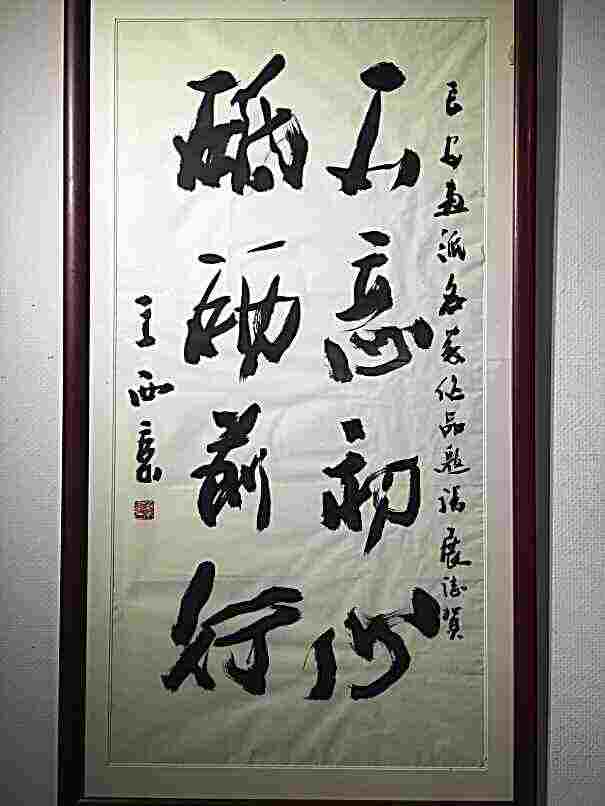 长安画派名家作品邀请展志贺
不忘初心
砥砺前行
王西京